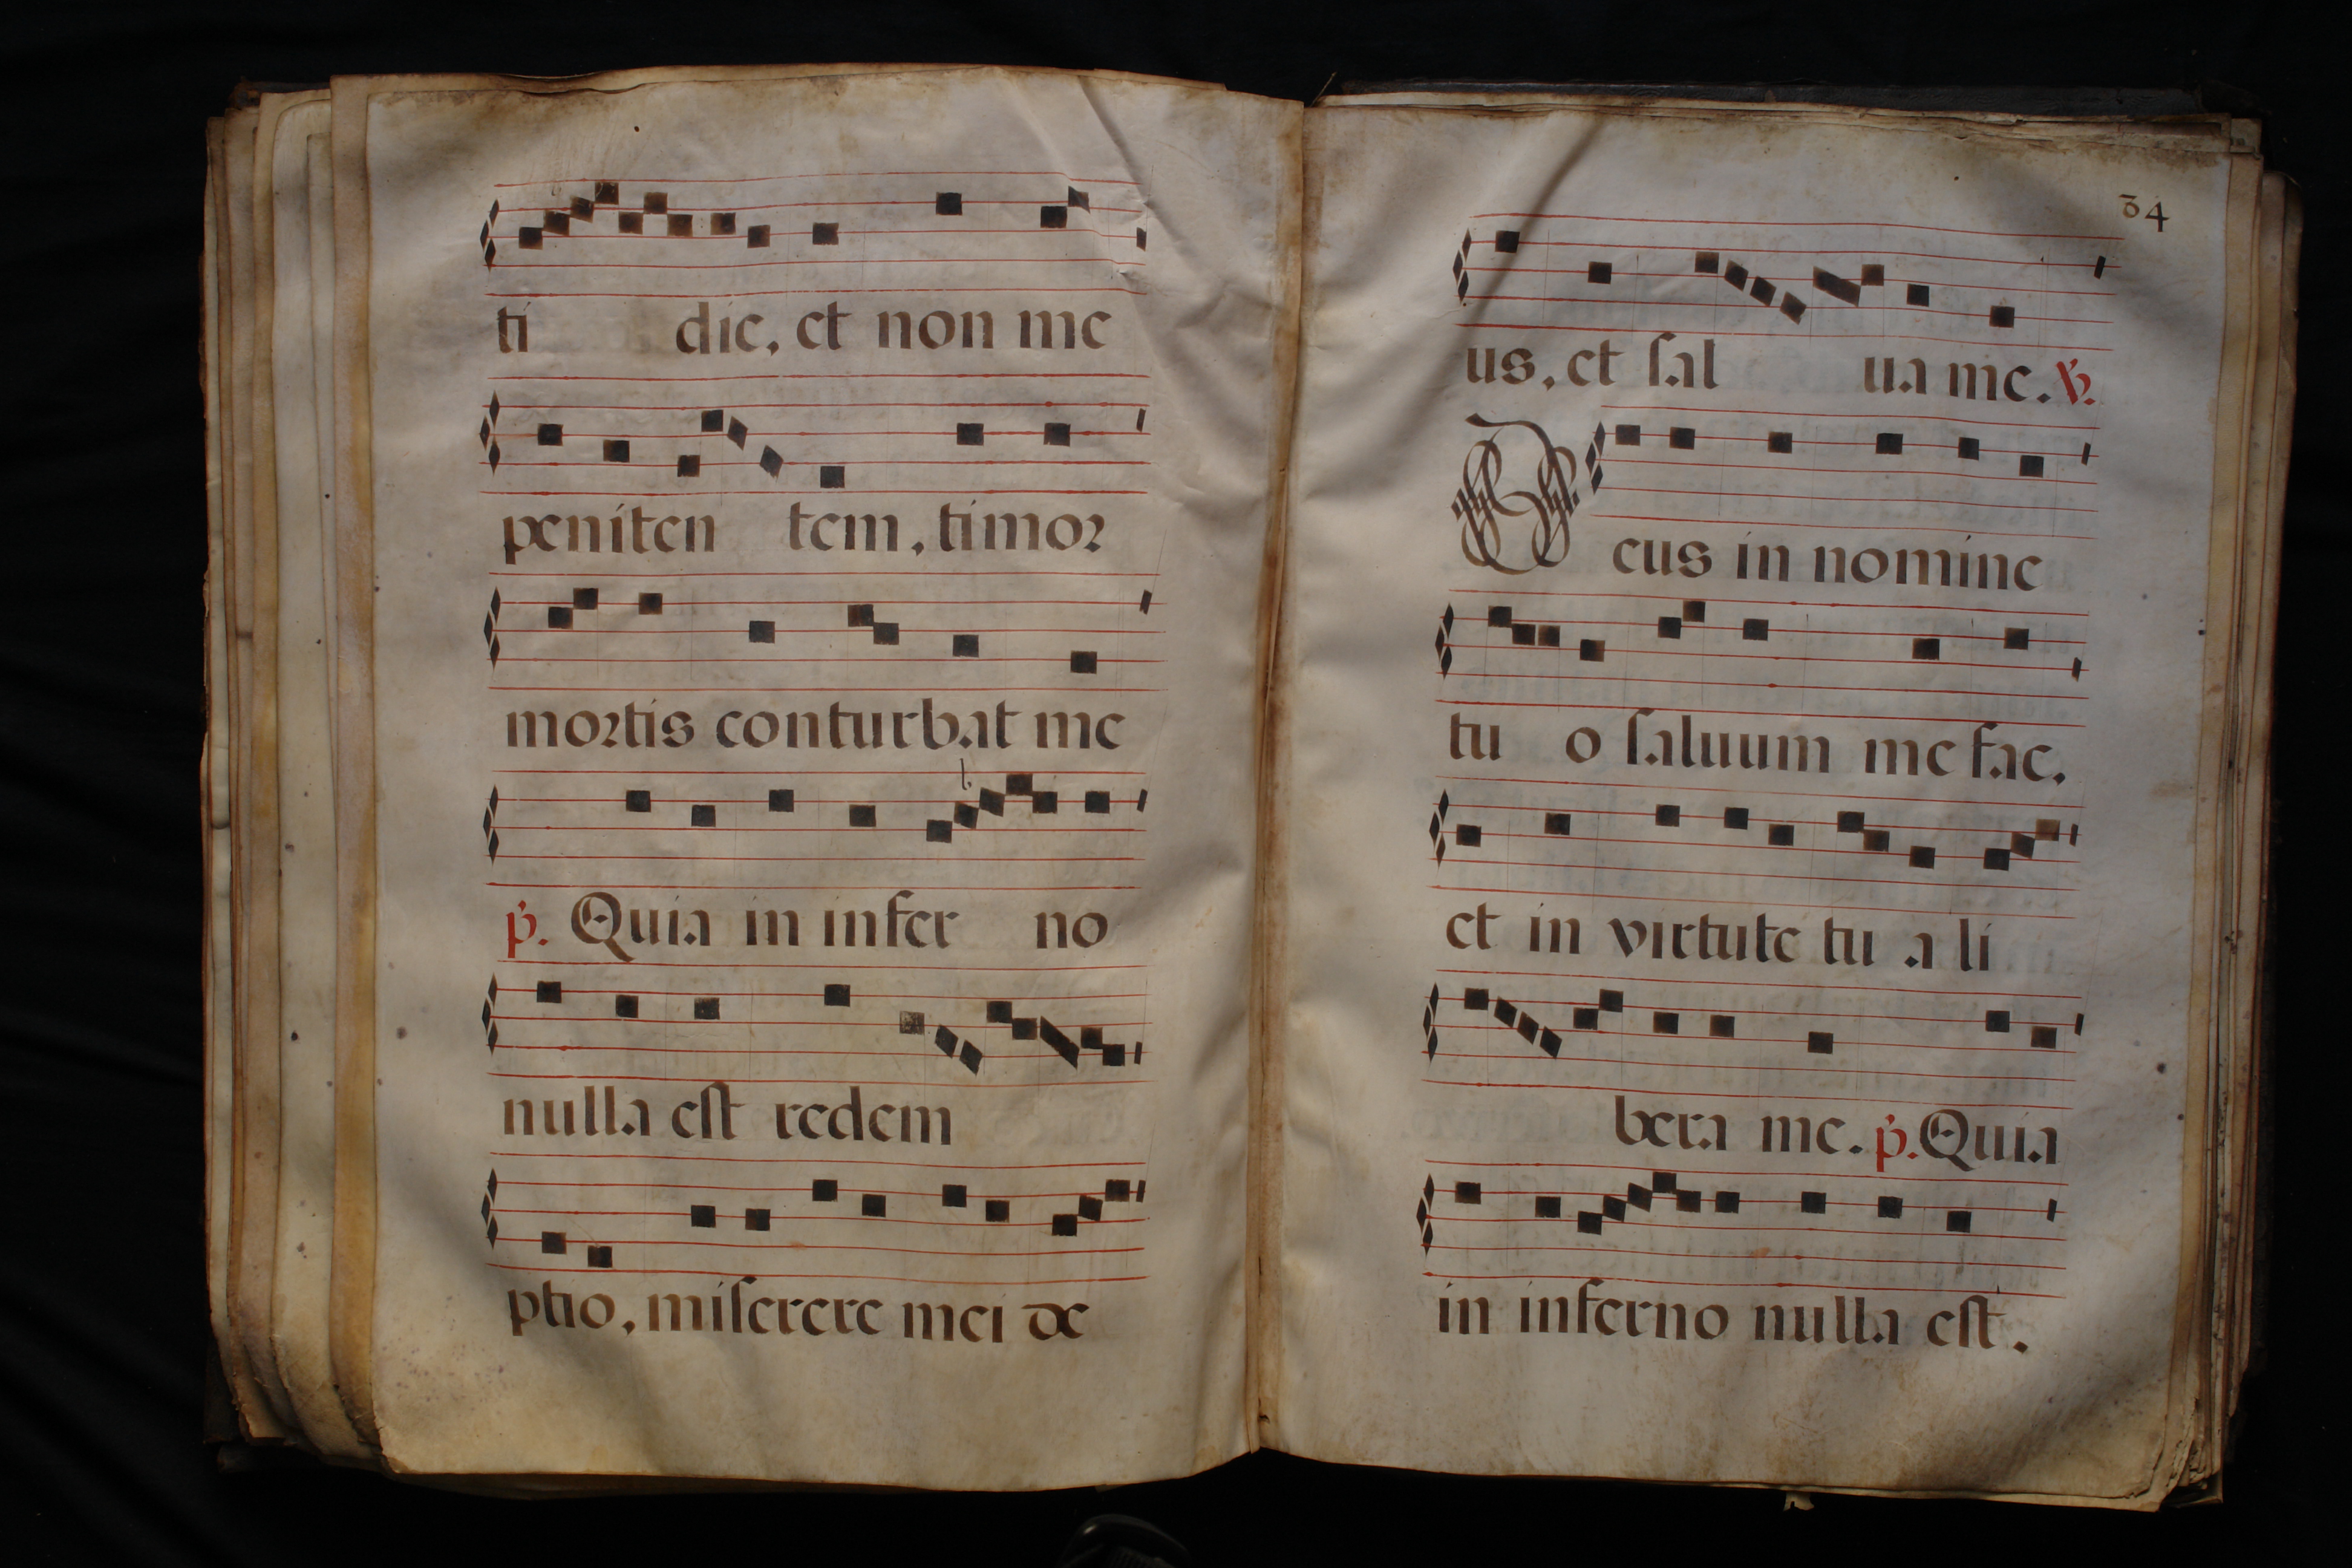 ti die, et non me
peniten tem, timor
mortis conturbat me
p. Quia in infer no
nulla est redem
ptio, miserere mei de
34
us, et sal ua me. V.
Deus in nomine
tu o saluum me fac,
et in virtute tu a li
bera me. p. Quia
in inferno nulla est.